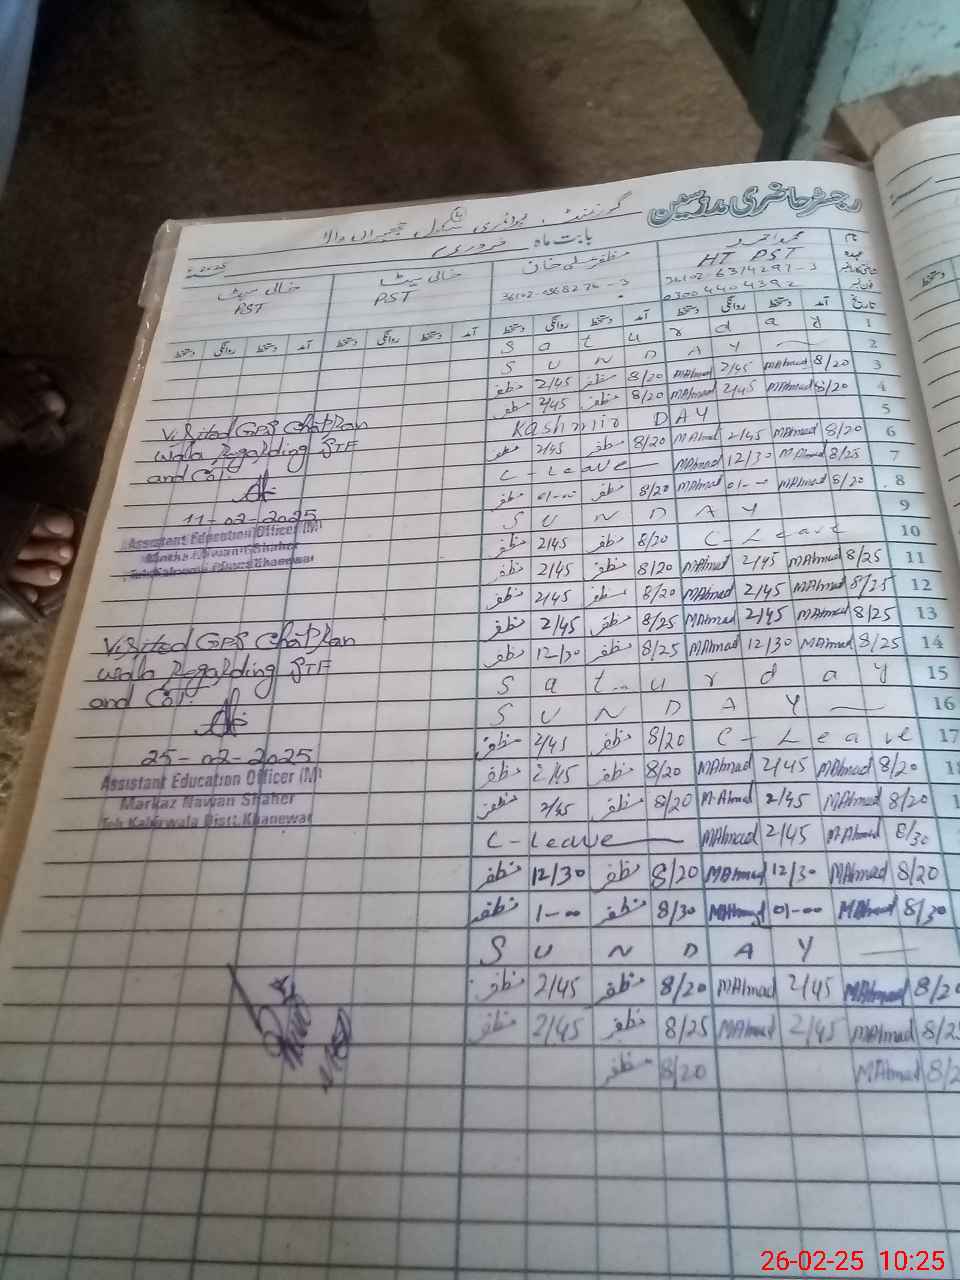 رجسٹر حاضری مدرسین
گورنمنٹ پرائمری سکول چھپراں والا
بابت ماہ فروری
نام محمد احمد مظفر علی خان خالی سیٹ خالی سیٹ
عہدہ HT PST PST PST
36102-6314291-3
03004404392
تاریخ آمد دستخط روانگی دستخط آمد دستخط روانگی دستخط آمد دستخط روانگی دستخط آمد دستخط روانگی دستخط
1 Saturday
2 SUNDAY
3 8/20 MAhmad 2/45 MAhmad 8/20 مظفر 2/45 مظفر
4 8/20 MAhmad 2/45 MAhmad 8/20 مظفر 2/45 مظفر
5 Kashmir DAY
6 8/20 MAhmad 2/45 MAhmad 8/20 مظفر 2/45 مظفر
7 8/25 MAhmad 12/30 MAhmad C-Leave
8 8/20 MAhmad 01-00 MAhmad 8/20 مظفر 01-00 مظفر
9 SUNDAY
10 C-Leave 8/20 مظفر 2/45 مظفر
11 8/25 MAhmad 2/45 MAhmad 8/20 مظفر 2/45 مظفر
12 8/25 MAhmad 2/45 MAhmad 8/20 مظفر 2/45 مظفر
13 8/25 MAhmad 2/45 MAhmad 8/25 مظفر 2/45 مظفر
14 8/25 MAhmad 12/30 MAhmad 8/25 مظفر 12/30 مظفر
15 Saturday
16 SUNDAY
17 C-Leave 8/20 مظفر 2/45 مظفر
8/20 MAhmad 2/45 MAhmad 8/20 مظفر 2/45 مظفر
8/20 MAhmad 2/45 MAhmad 8/20 مظفر 2/45 مظفر
8/30 MAhmad 2/45 MAhmad C-Leave
8/20 MAhmad 12/30 MAhmad 8/20 مظفر 12/30 مظفر
8/30 MAhmad 01-00 MAhmad 8/30 مظفر 1-00 مظفر
SUNDAY
8/20 MAhmad 2/45 MAhmad 8/20 مظفر 2/45 مظفر
8/25 MAhmad 2/45 MAhmad 8/25 مظفر 2/45 مظفر
MAhmad 8/20 مظفر
Visited GPS Chapran
wala Regarding STF
and Cot.
11-02-2025
Assistant Education Officer (M)
Markaz Nawan Shaher
Teh Kabirwala Distt: Khanewal
Visited GPS Chapran
wala Regarding STF
and Cot.
25-02-2025
Assistant Education Officer (M)
Markaz Nawan Shaher
Teh Kabirwala Distt: Khanewal
26-02-25 10:25